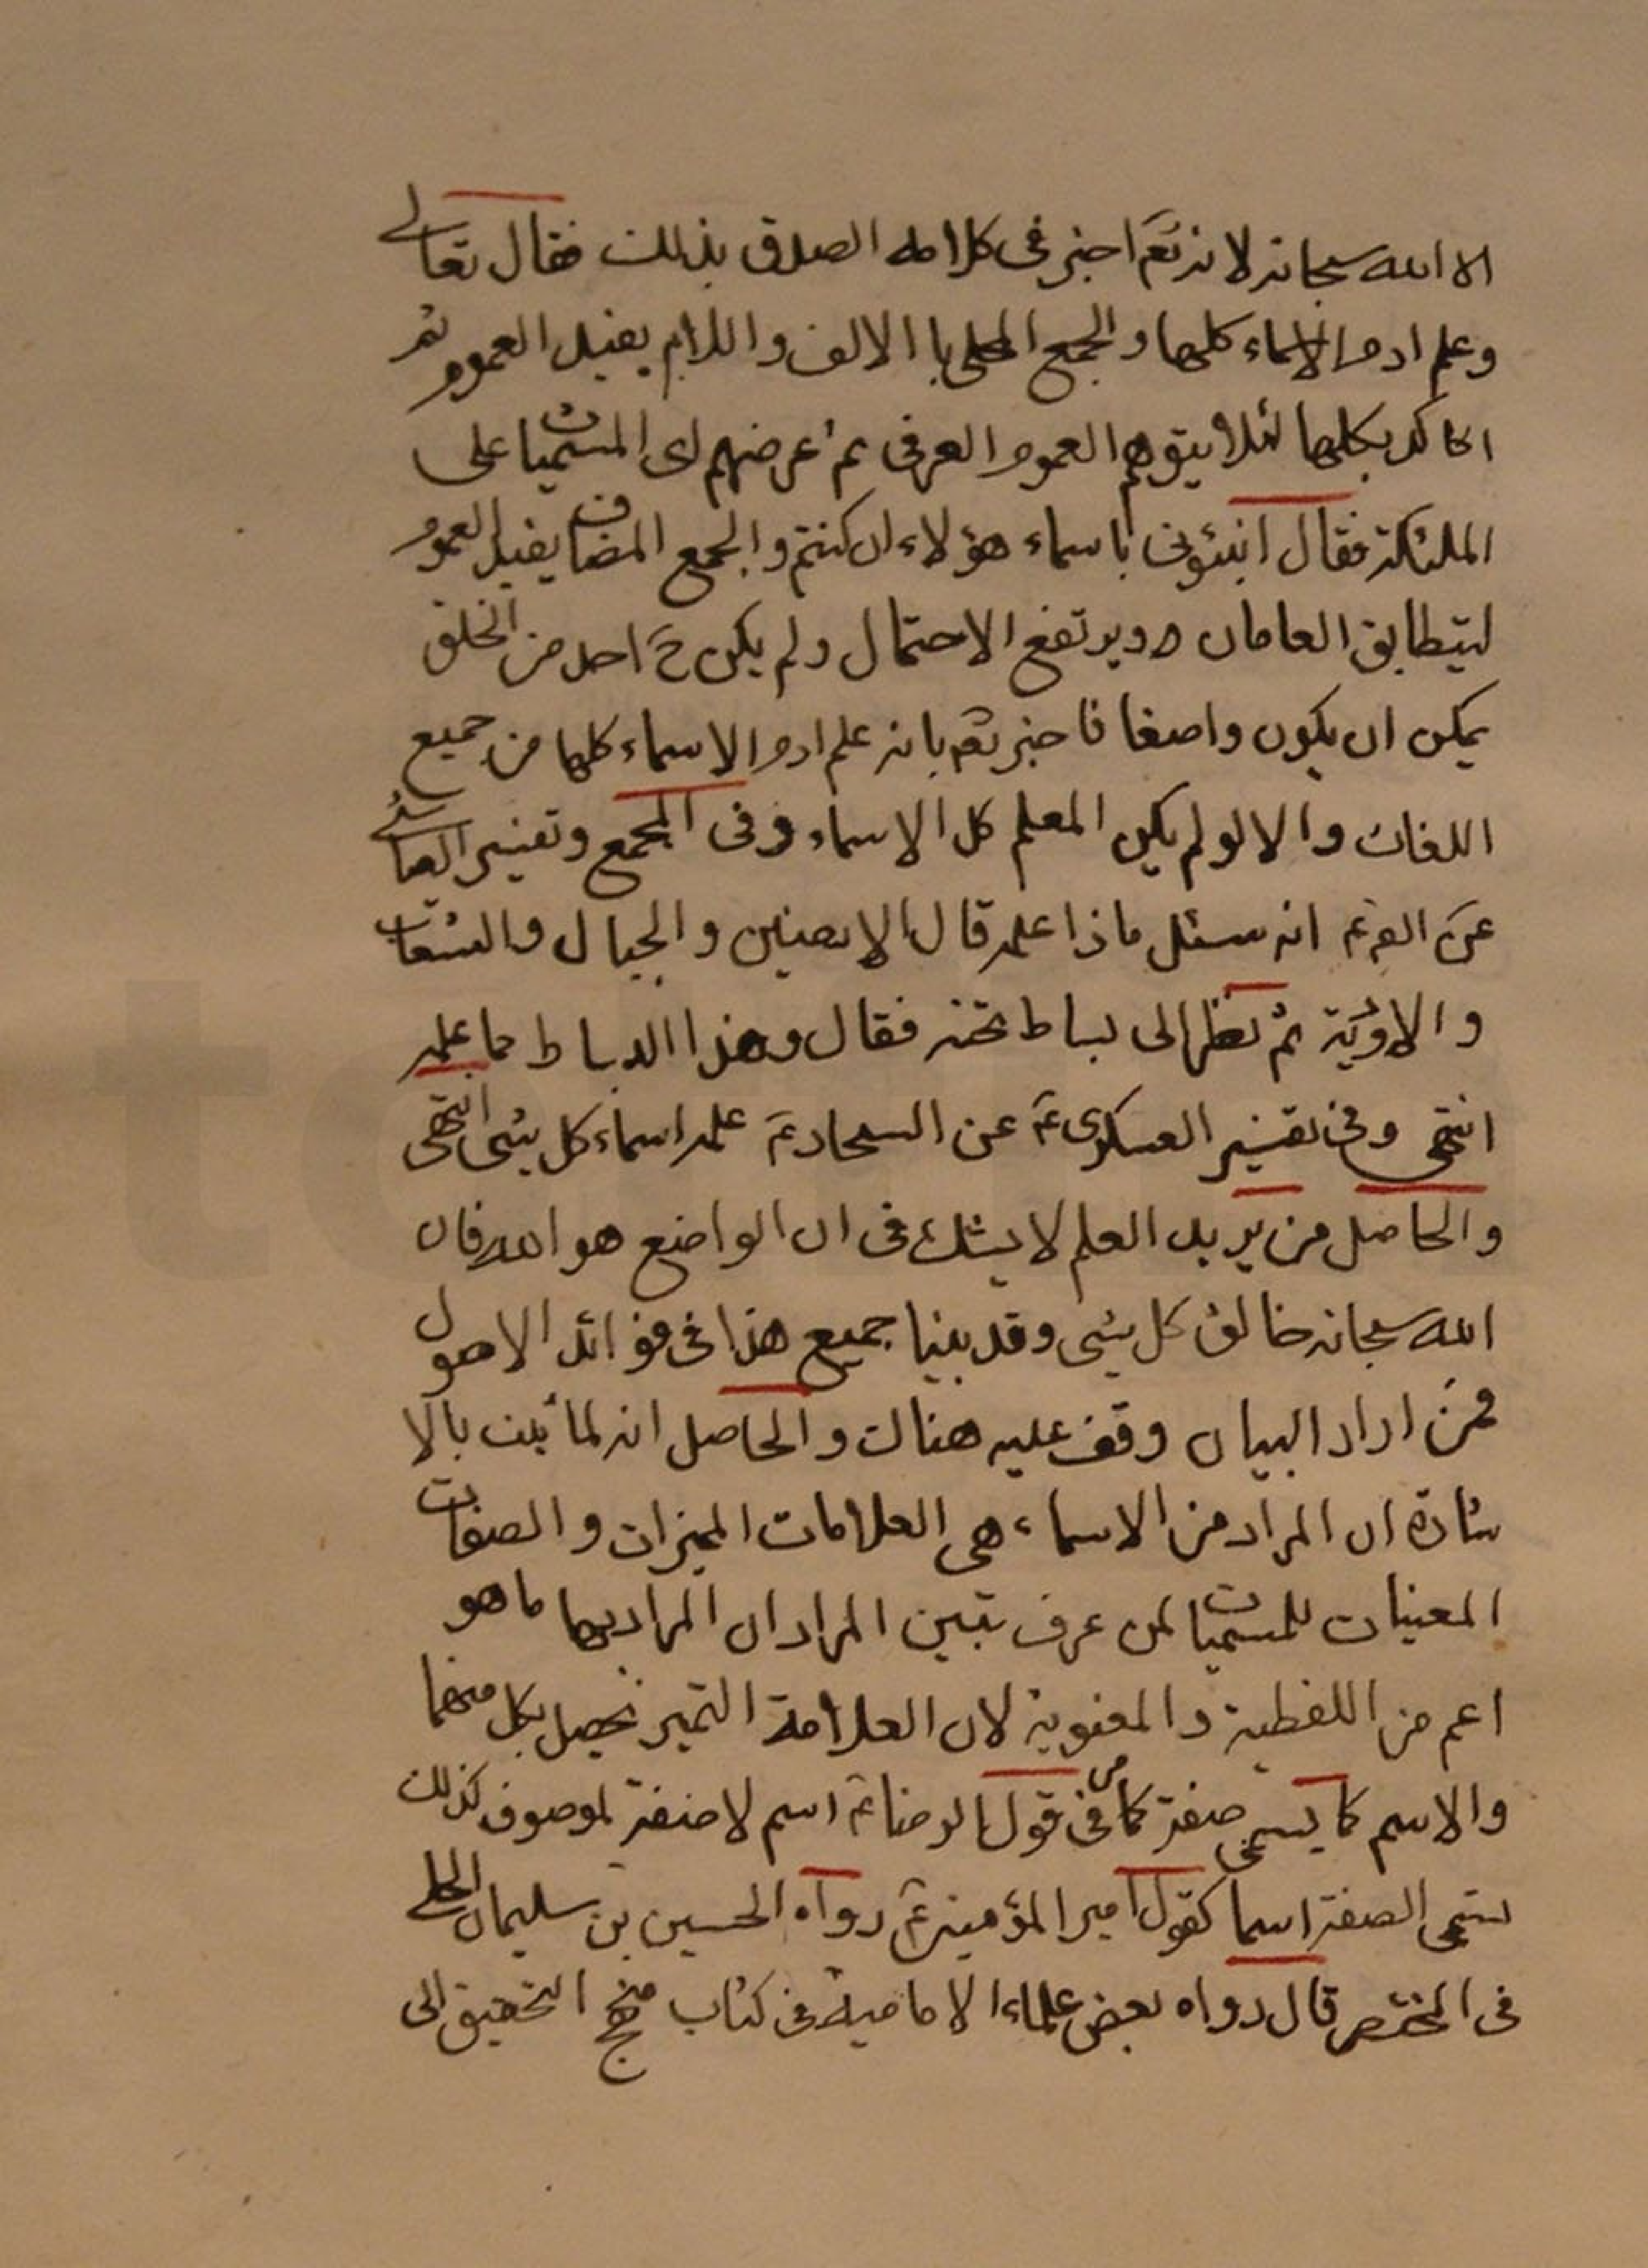 الا الله سبحانه لانه تعم اخبر فى كلامه الصدق بذلك فقال تعالى
وعلم ادم الاسماء كلها والجمع المحلى باالالف واللام يفيد العموم ثم
اكد بكلها لئلا يتوهم العموم العرفى ثم عرضهم اى المسميات على
الملئكة فقال انبئونى باسماء هؤلاء ان كنتم والجمع المضاف يفيد العموم
ليتطابق العامان ويرتفع الاحتمال ولم يكن ح احد من الخلق
يمكن ان يكون واضعا فاخبر تعم بانه علم ادم الاسماء كلها من جميع
اللغات والا لو لم يكن المعلم كل الاسماء وفى المجمع وتفسير العياشى
عن انه سئل ماذا علمه قال الارضين والجبال والشعاب
والاودية ثم نظر الى بساط تحته فقال وهذا البساط مما علمه
انتهى وفى تفسير العسكرى ع عن السجاد ع علمه اسماء كل شىء انتهى
والحاصل من يريد العلم لا يشك فى ان الواضع هو الله فان
الله سبحانه خالق كل شىء وقد بينا جميع هذا فى فوائد الاصول
فمن اراد البيان وقف عليه هناك والحاصل انه لما ثبت بالا
شارة ان المراد من الاسماء هى العلامات المميزات والصفات
المعينات للمسميات لمن عرف تبين المراد ان المراد بها ما هو
اعم من اللفظية والمعنوية لان العلامة التميز تحصل بكل منهما
والاسم كما يسمى صفة كما مر فى قول الرضا ع اسم لا صفة لموصوف كذلك
تسمى الصفة اسما كقول امير المؤمنين ع رواه الحسين بن سليمان الحلى
فى المختصر قال رواه بعض علماء الامامية فى كتاب منهج التحقيق الى